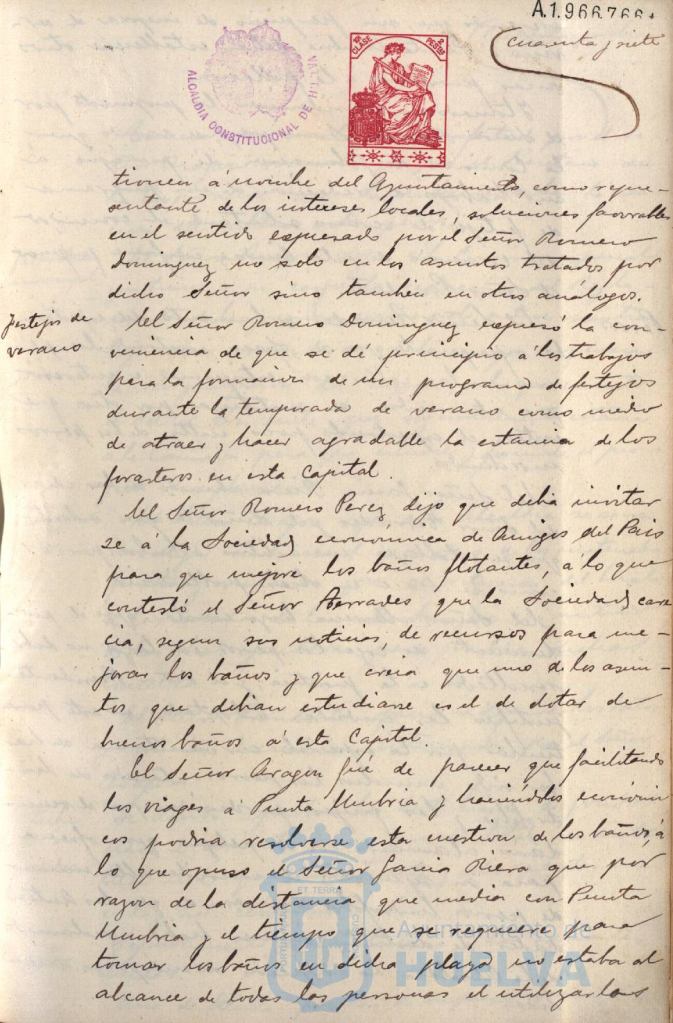 A.1.966.766
cuarenta y siete
ALCALDIA CONSTITUCIONAL DE HUELVA
1ª CLASE 2 PESTAS
tionen á nombre del Ayuntamiento, como repre-
sentante de los intereses locales, soluciones favorables
en el sentido espresado por el Señor Romero
Dominguez no solo en los asuntos tratados por
dicho Señor sino tambien en otros análogos.
Festejos de
verano
El Señor Romero Dominguez expresó la con-
veniencia de que se dé principio á los trabajos
para la formacion de un programa de festejos
durante la temporada de verano como medio
de atraer y hacer agradable la estancia de los
forasteros en esta Capital.
El Señor Romero Perez dijo que debia invitar
se á la Sociedad económica de Amigos del Pais
para que mejore los baños flotantes, á lo que
contestó el Señor Terrades que la Sociedad care
cia, segun sus noticias, de recursos para me-
jorar los baños y que creia que uno de los asun-
tos que debian estudiarse es el de dotar de
buenos baños á esta Capital.
El Señor Aragon fué de parecer que facilitando
los viages á Punta Umbria y haciéndolos económi
cos podria resolverse esta cuestion de los baños, á
lo que opuso el Señor Garcia Riera que por
razon de la distancia que media con Punta
Umbria y el tiempo que se requiere para
tomar los baños en dicha playa no estaba al
alcance de todas las personas el utilizarlos
Ayuntamiento de
HUELVA